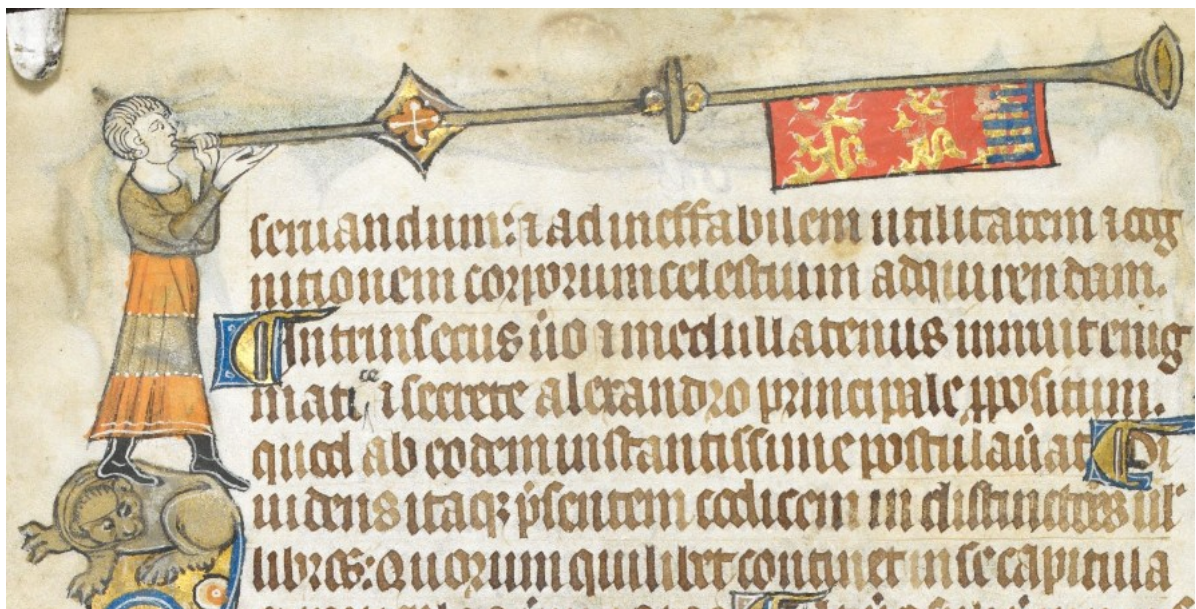 seruandum: ⁊ ad ineffabilem utilitatem ⁊ cog
nitionem corporum celestium adquirendam.
Intrinsecus ũo ⁊ medullatenus innuit enig
matice ⁊ secrete alexandro principale ꝓpositum.
quod ab eodem instantissime postulauāt Di
uidens itaqꝫ p̃sentem codicem in distinctões uel
libros: Quorum quilibet continet in se capitula